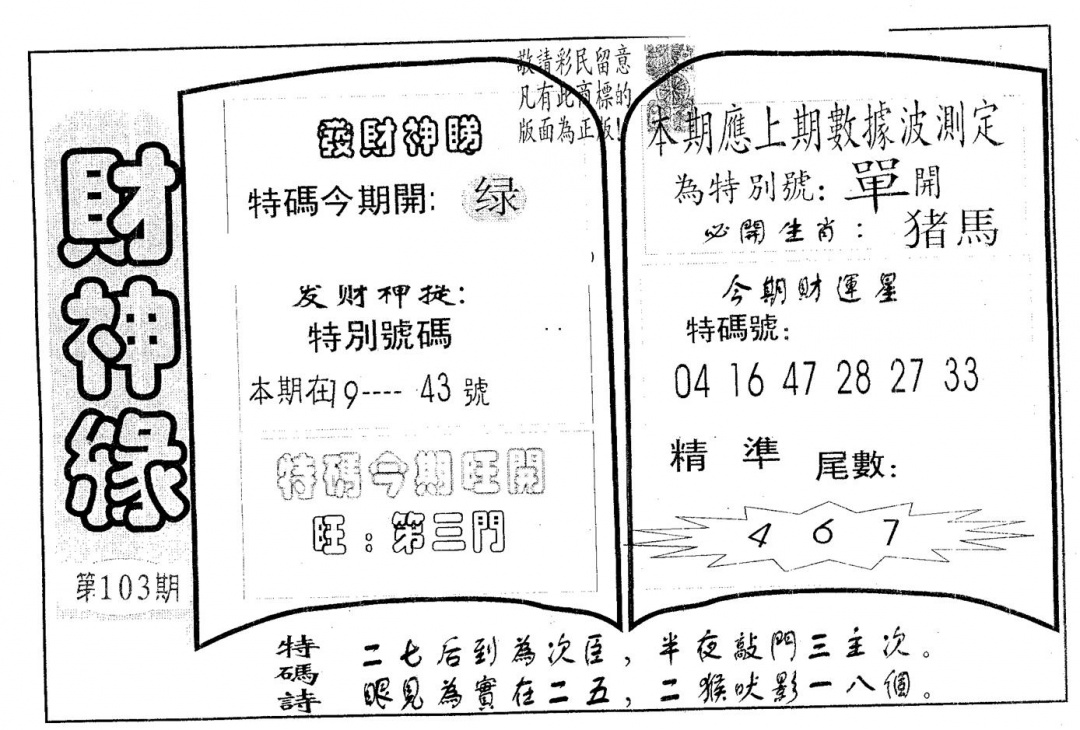 財神緣
第103期
敬請彩民留意
凡有此商標的
版面為正版!
發財神睇
特碼今期開: 绿
发财神挻:
特別號碼
本期在19---- 43 號
特碼今期旺開
旺:第三門
本期應上期數據波測定
為特別號: 單開
必開生肖: 猪馬
今期財運星
特碼號:
04 16 47 28 27 33
精 準 尾數:
4 6 7
特碼詩
二七后到為次臣,半夜敲門三主次。
眼見為實在二五,二猴吠影一八個。